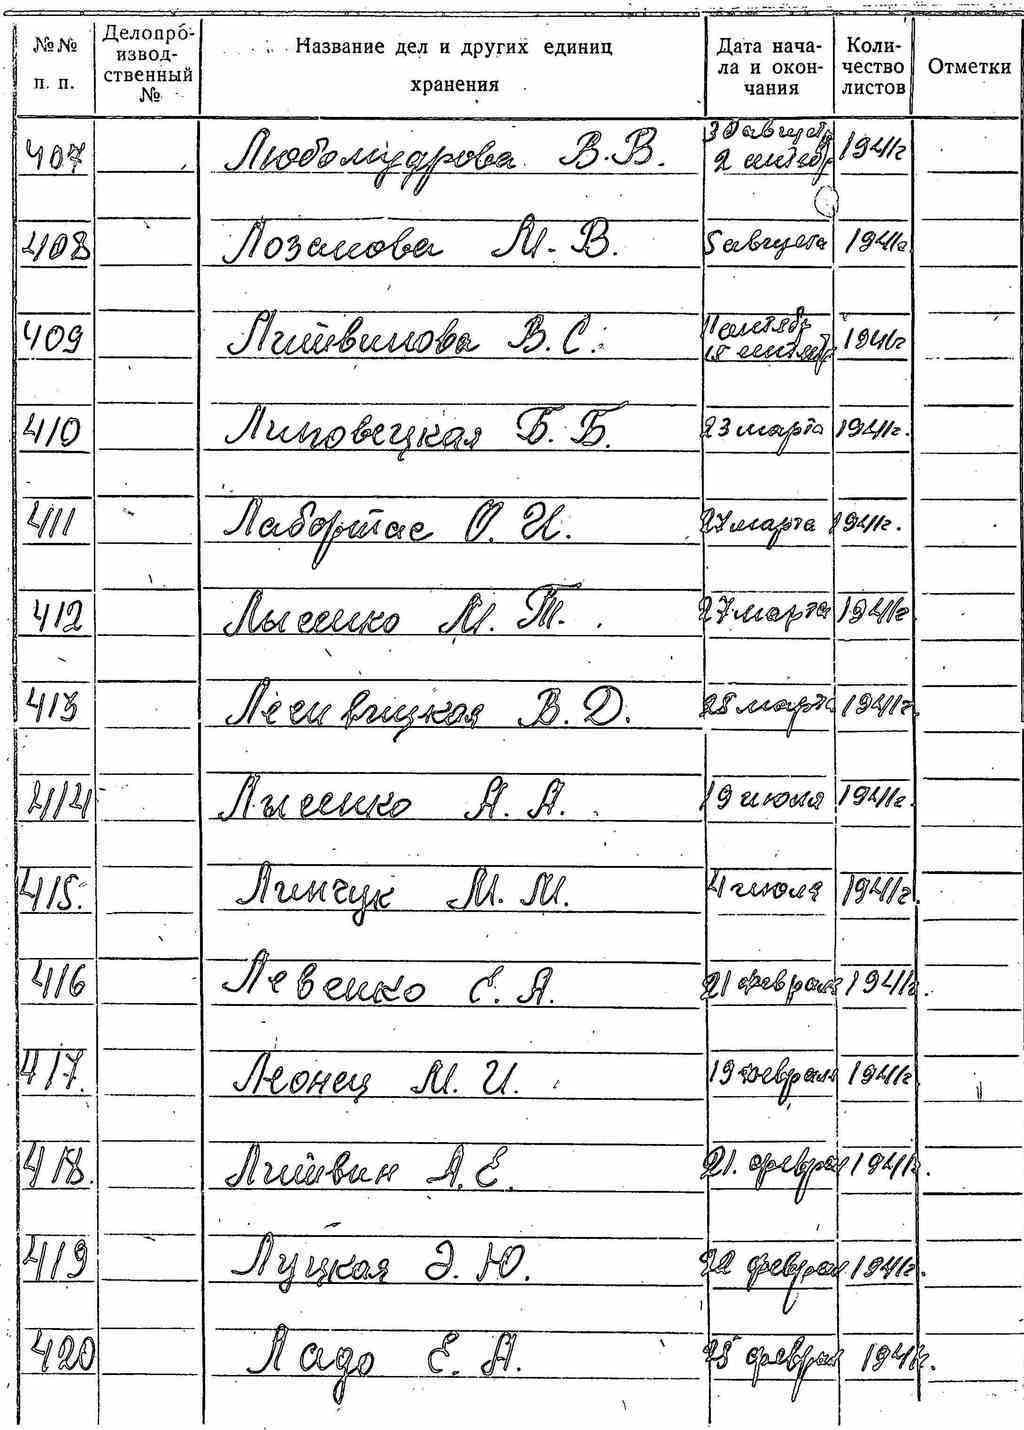 №№ п. п. Делопроизводственный № Название дел и других единиц хранения Дата начала и окончания Количество листов Отметки
407 Любомудрова В.В. 30 августа 2 сентябр 1941г
408 Лозамова М.В. 5 августа 1941г
409 Литвинова В.С. 11 сентябр 15 сентябр 1941г
410 Липовецкая Б.Б. 23 марта 1941г.
411 Лабортас О.И. 27 марта 1941г.
412 Лысенко М.Т. 27 марта 1941г.
413 Лесивицкая В.Д. 28 марта 1941г.
414 Лысенко А.А. 19 июля 1941г.
415. Линчук М.М. 4 июля 1941г.
416 Левенко Е.А. 21 февраля 1941г.
417. Леонец М.И. 19 февраля 1941г
418. Литвин А.Е. 21. феврал 1941г.
419 Луцкая Э.Ю. 22 феврал 1941г.
420 Ладо Е.А. 25 феврал 1941г.